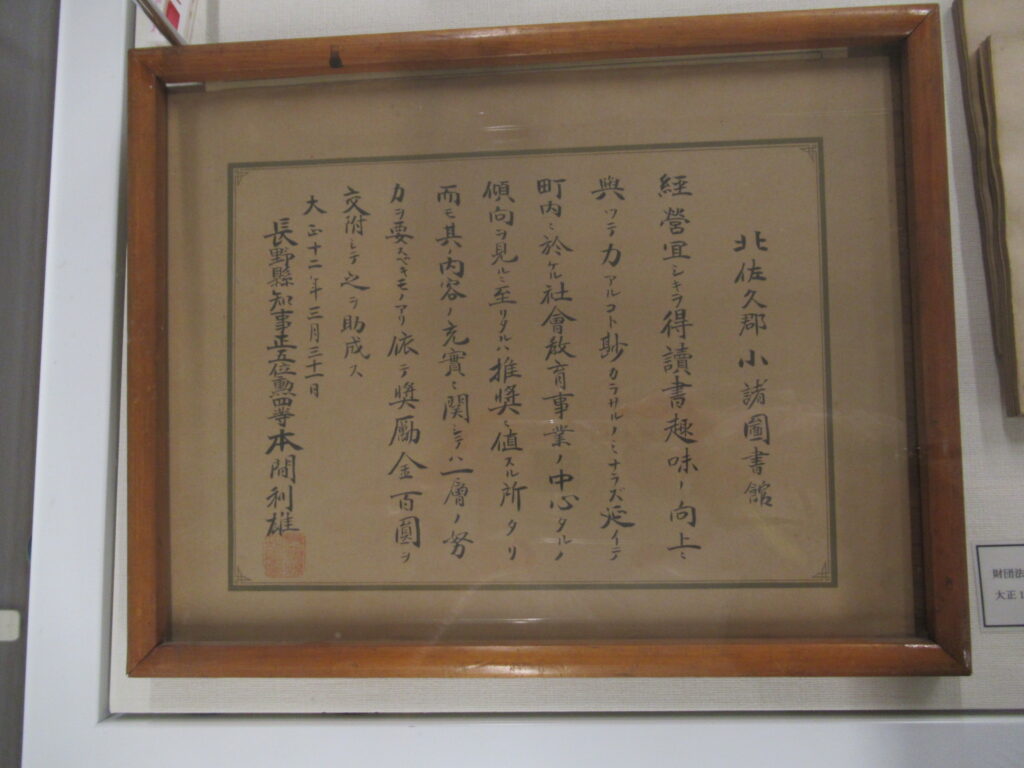 北佐久郡小諸圖書館
經營宜シキヲ得讀書趣味ノ向上ニ
與ツテ力アルコト尠カラサルノミナラズ延イテ
町內ニ於ケル社會敎育事業ノ中心タルノ
傾向ヲ見ルニ至リタルハ推奬ニ値スル所タリ
而モ其ノ內容ノ充實ニ関シテハ一層ノ努
力ヲ要スベキモノアリ依テ奬勵金百圓ヲ
交附シテ之ヲ助成ス
大正十二年三月三十一日
長野縣知事正五位勲四等本間利雄
財団法
大正1